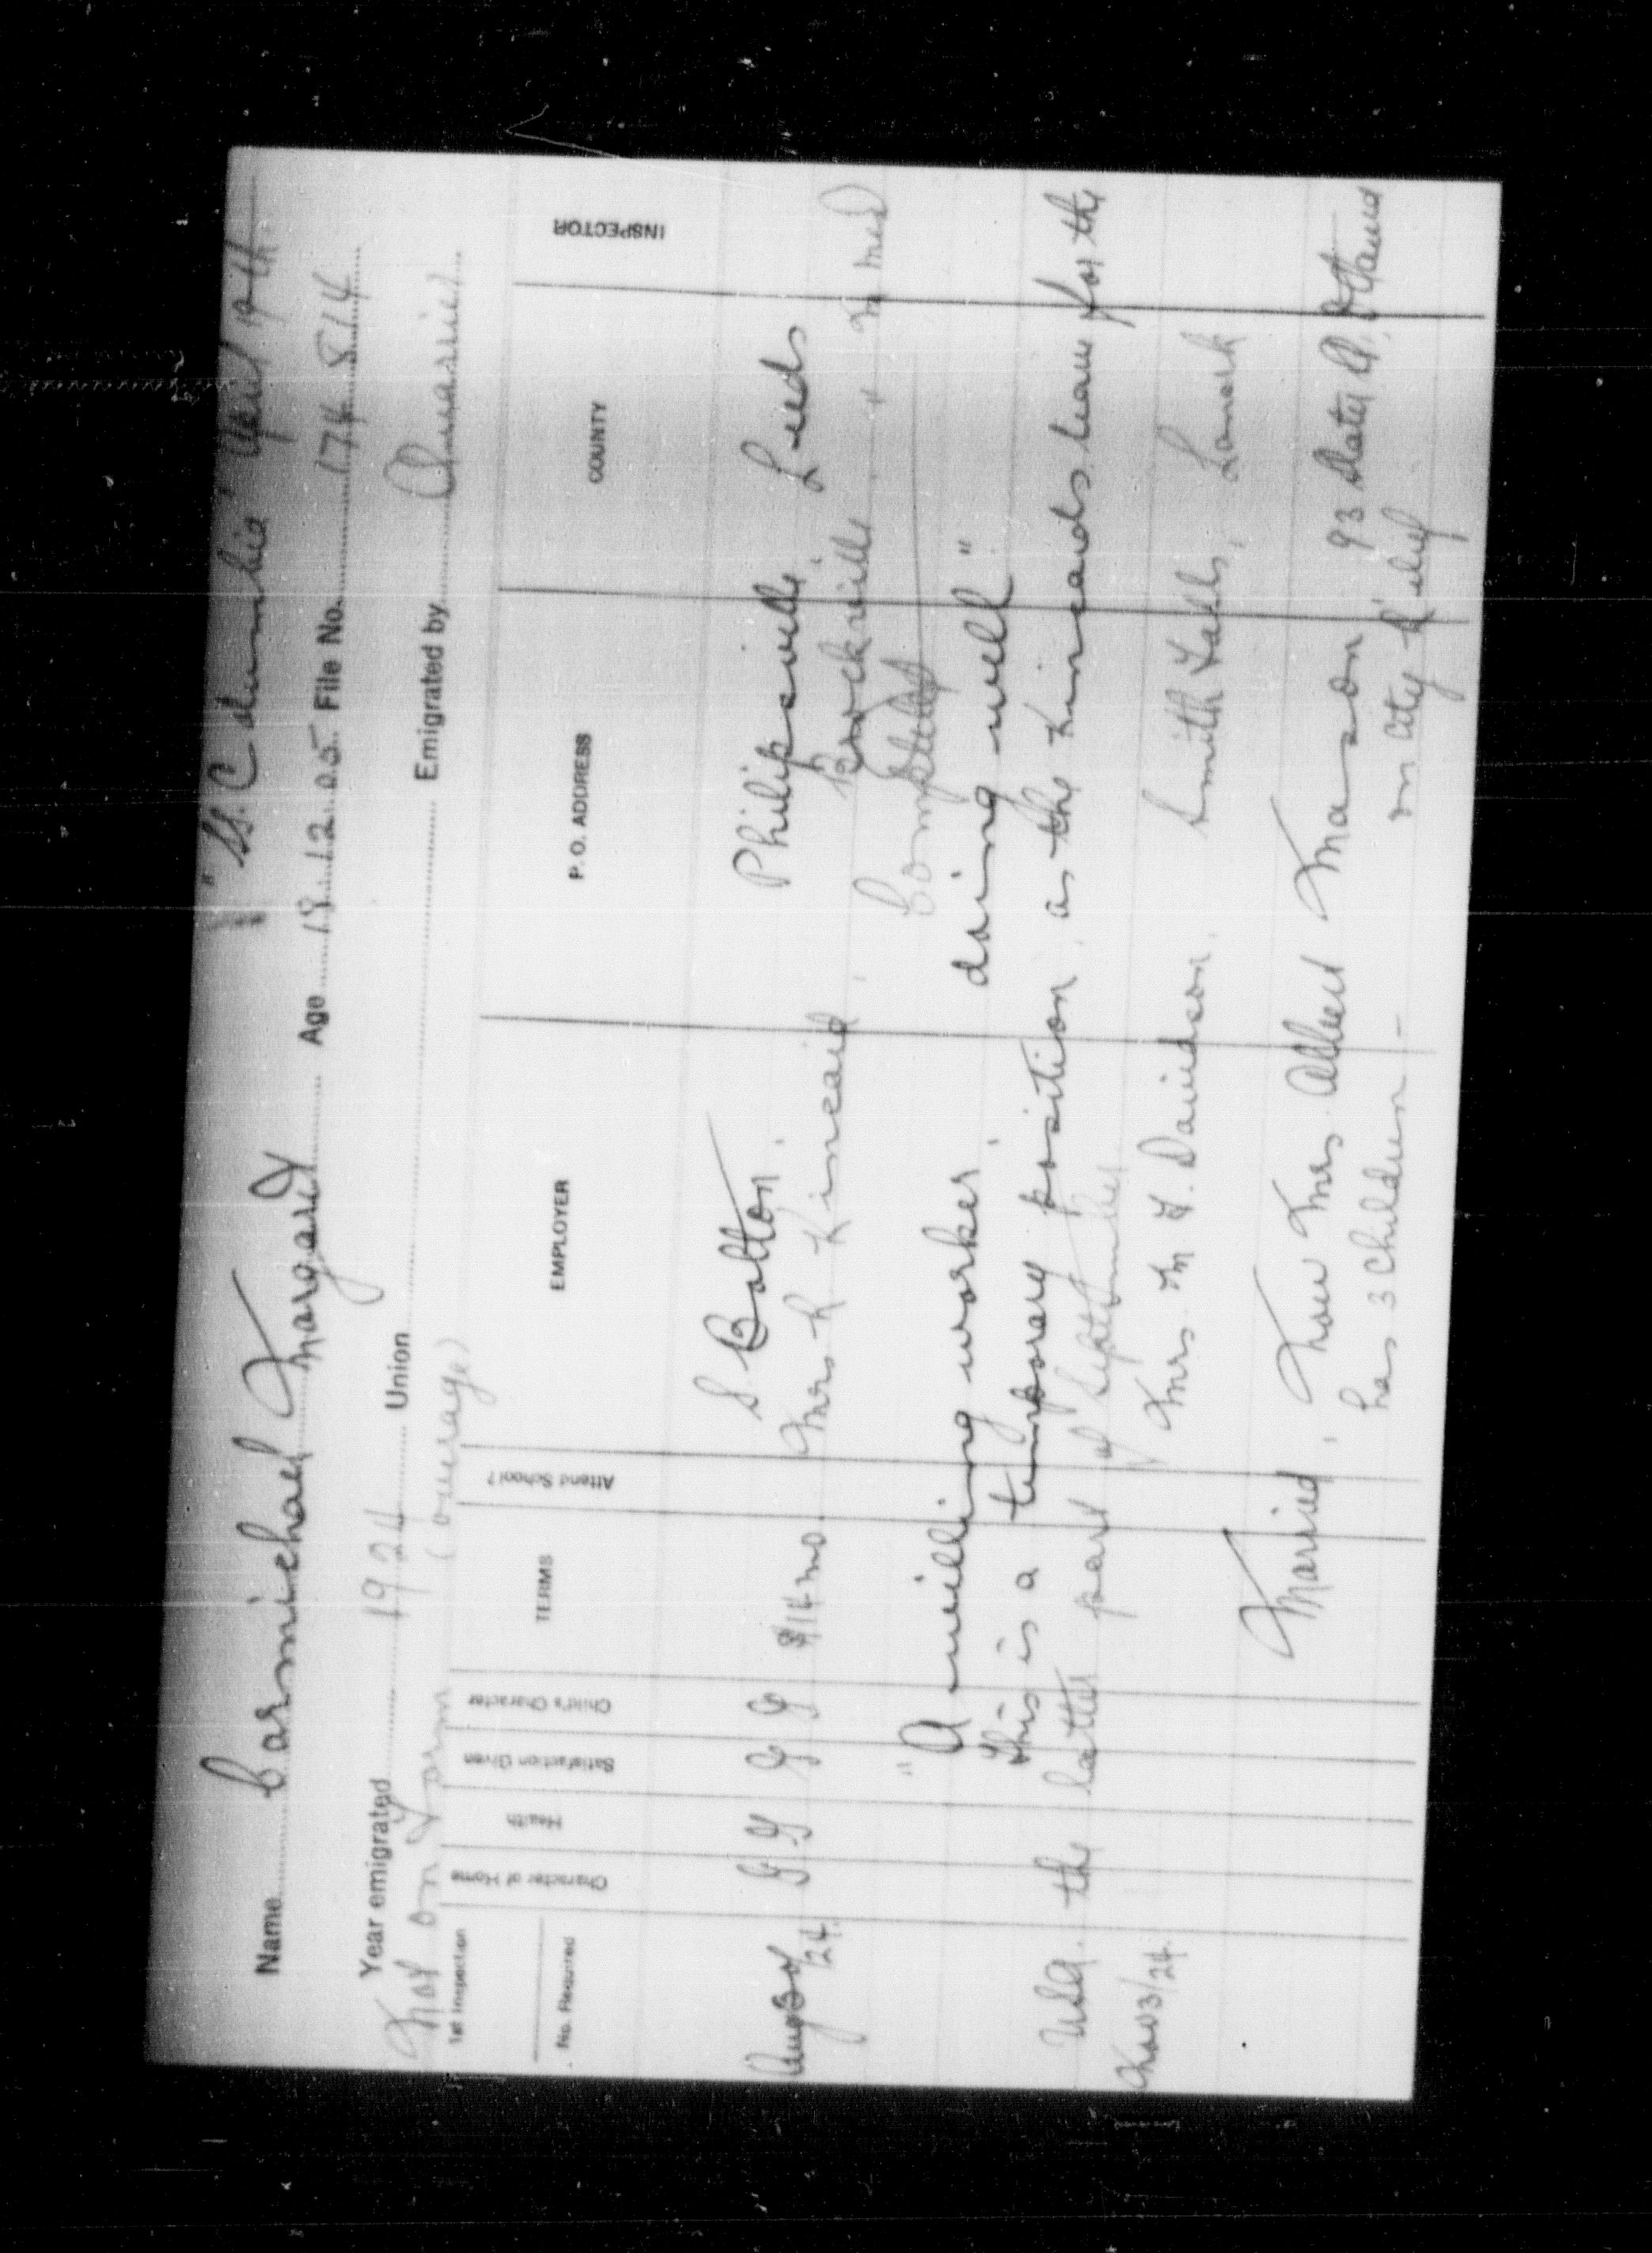 "S.S. Columbia" April 19th
Name Carmichael Margaret Age 18.12.05 File No. 174 814
Year emigrated 1924 Union Emigrated by Quarrier
Not on Form (average)
1st Inspection
No. Required
Character of Home
Health
Satisfaction Given
Child's Character
TERMS
Attend School?
EMPLOYER
P. O. ADDRESS
COUNTY
INSPECTOR
Aug 30/24 G G G G $14 mo. S Bolton Philipsville, Leeds
Mrs R Kincaid, Brockville
Completed
"A willing worker, doing well"
This is a temporary position, as the Kincaids leave for the
USA. the latter part of September
Nov 3/24 Mrs. M F. Davidson, Smith Falls, Lanark
Married, Now Mrs. Albert Mason 93 Slater St. Ottawa
has 3 children - on City Relief